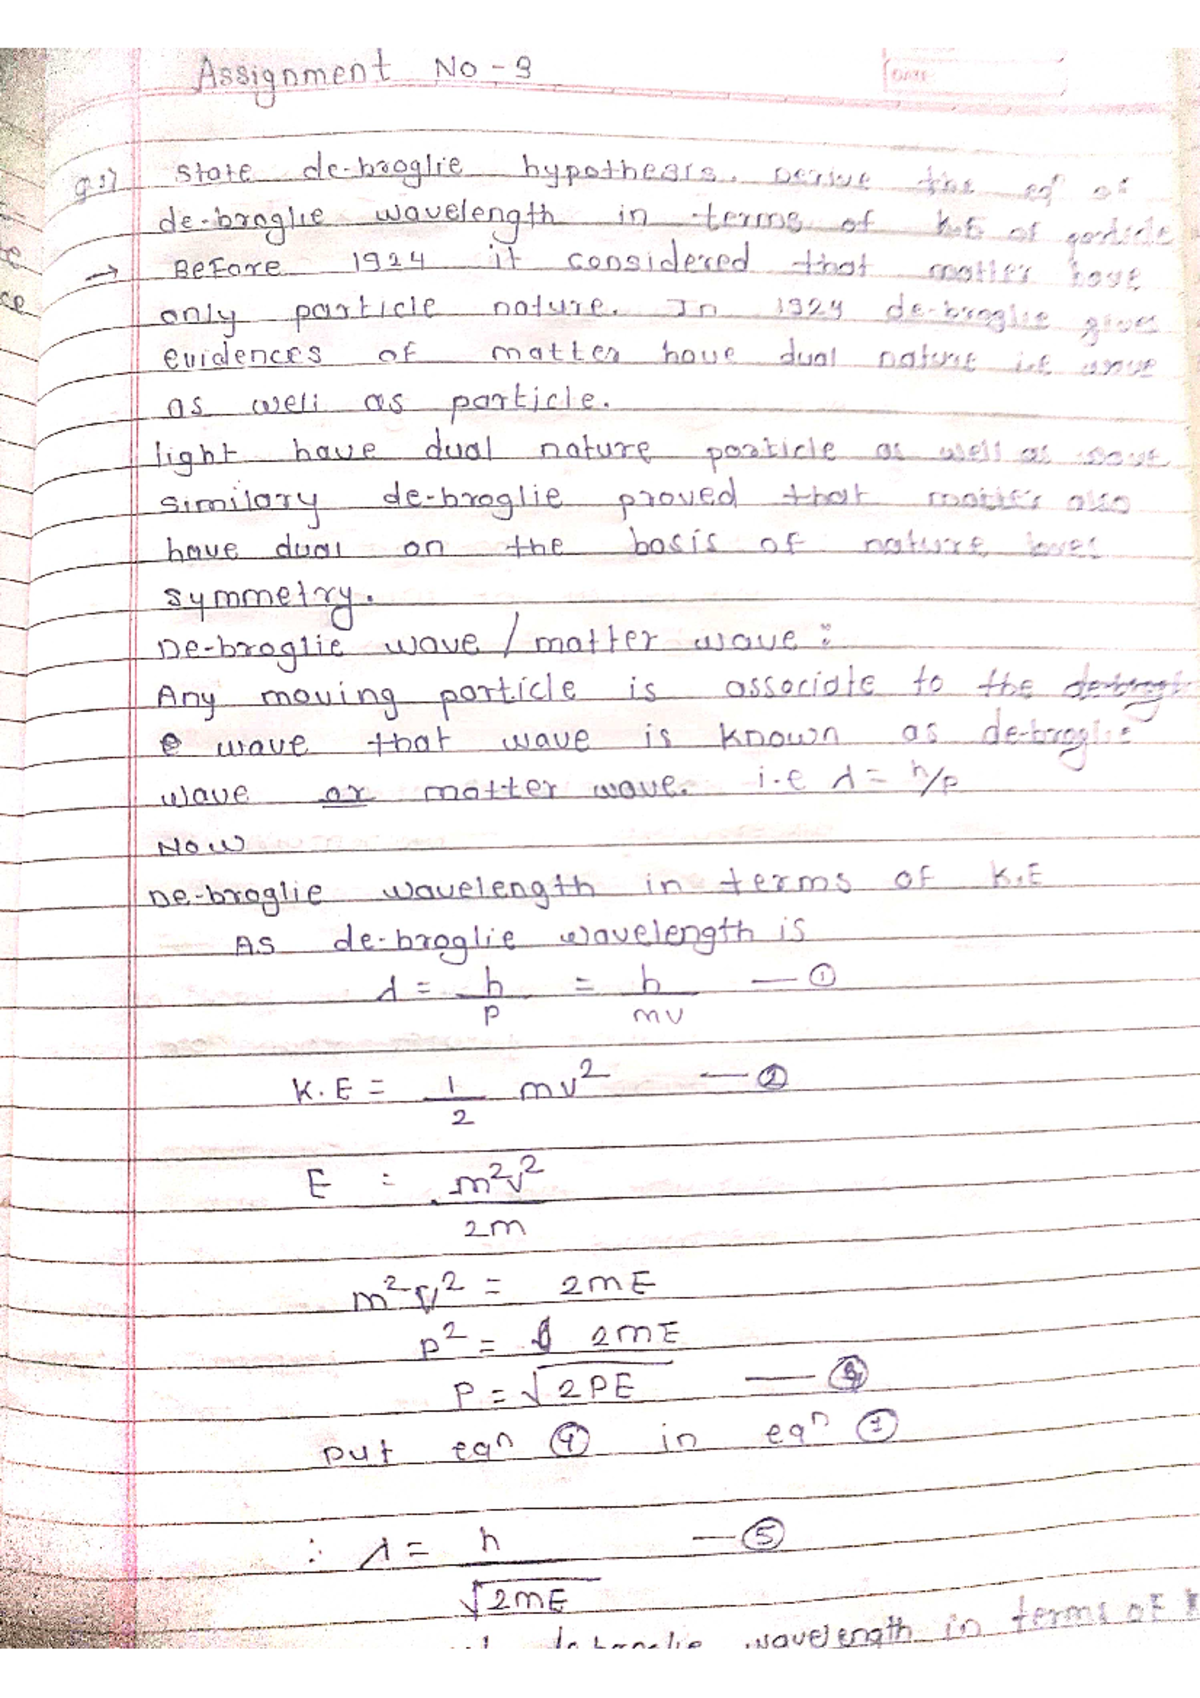 Assignment No - 3
DATE
Q.1) State de-broglie hypothesis. Derive the eqn of
de-broglie wavelength in terms of K.E of particle
→ Before 1924 it considered that matter have
only particle nature. In 1924 de-broglie gives
evidences of matter have dual nature i.e wave
as well as particle.
light have dual nature particle as well as wave
similary de-broglie proved that matter also
have dual on the basis of nature loves
symmetry.
De-broglie wave / matter wave :
Any moving particle is associate to the
wave that wave is known as de-broglie
wave or matter wave. i.e λ = h/p
Now
De-broglie wavelength in terms of K.E
As de-broglie wavelength is
λ = h/p = h/mv — ①
K.E = 1/2 mv² — ②
E = m²v²/2m
m²v² = 2mE
p² = 2mE
P = √2PE —
put eqn ④ in eqn ①
∴ λ = h/√2mE — ⑤
de-broglie wavelength in terms of